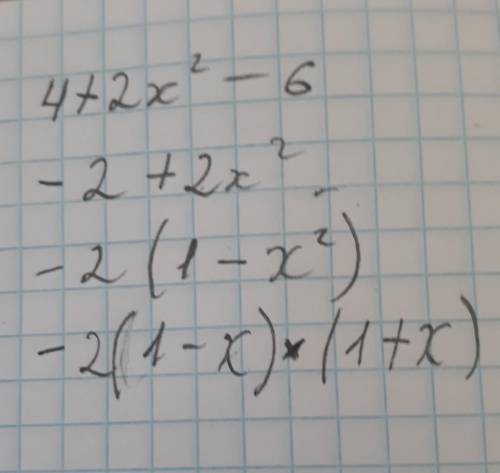 4+2x² - 6
-2 +2x²
-2 (1 - x²)
-2(1-x)•(1+x)